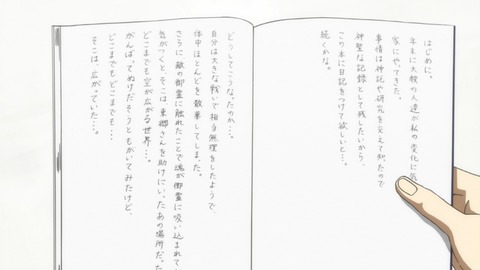 はじめに。
年末に大赦の人達が私の変化に気
家にやってきた。
事情は神託や研究を交えて知ったので
神聖な記録として残したいから、
この本に日記をつけて欲しいと…。
続くかな。
どうしてこうなったのか…。
自分は大きな戦いで相当無理をしたようで、
体中ほとんどを散華してしまった。
さらに敵の御霊に触れたことで魂が御霊に吸い込まれて
気がつくと、そこは東郷さんを助けにいったあの場所だった
どこまでも空が広がる世界…。
がんばってぬけだそうともがいてみたけど、
どこまでもどこまでも…
そこは、広がっていた…。